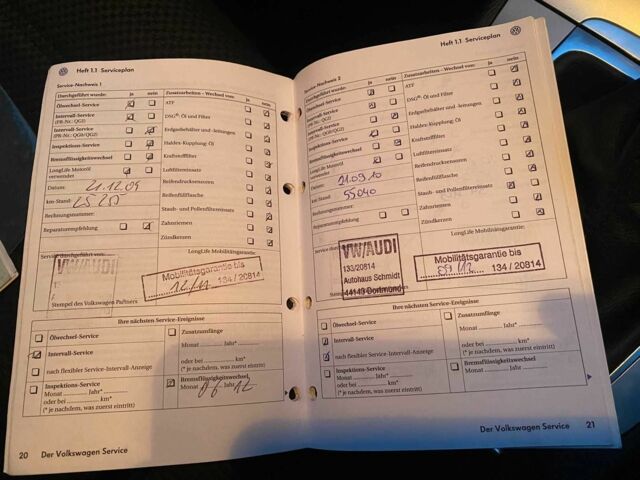 Heft 1.1 Serviceplan
Service-Nachweis 1
Durchgeführt wurde: ja nein
Zusatzarbeiten - Wechsel von: ja nein
Ölwechsel-Service
ATF
Intervall-Service
(PR-Nr.: QG1)
DSG®: Öl und Filter
Intervall-Service
Erdgasbehälter und -leitungen
Inspektions-Service
Haldex-Kupplung: Öl
Bremsflüssigkeitswechsel
Kraftstofffilter
LongLife Motoröl
verwendet
Luftfiltereinsatz
Datum: 21.12.09
Reifendrucksensoren
km-Stand:
Reifenfüllflasche
Rechnungsnummer:
Staub- und Pollenfiltereinsatz
Reparaturempfehlung
Zahnriemen
Zündkerzen
Service durchgeführt von:
LongLife Mobilitätsgarantie:
VW/AUDI
Mobilitätsgarantie bis
134 / 20814
Stempel des Volkswagen Partners
Ihre nächsten Service-Ereignisse
Ölwechsel-Service
Zusatzumfänge
Monat Jahr*
Intervall-Service
oder bei km*
nach flexibler Service-Intervall-Anzeige
(* je nachdem, was zuerst eintritt)
Inspektions-Service
Monat Jahr*
oder bei km*
(* je nachdem, was zuerst eintritt)
Bremsflüssigkeitswechsel,
Monat 06 Jahr 12
20 Der Volkswagen Service
Heft 1.1 Serviceplan
Service-Nachweis 2
Durchgeführt wurde: ja nein
Zusatzarbeiten - Wechsel von: ja nein
Ölwechsel-Service
ATF
Intervall-Service
(PR-Nr.: QG1)
DSG®: Öl und Filter
Intervall-Service
Erdgasbehälter und -leitungen
Inspektions-Service
Haldex-Kupplung: Öl
Bremsflüssigkeitswechsel
Kraftstofffilter
LongLife Motoröl
verwendet
Luftfiltereinsatz
Datum: 21.09.10
Reifendrucksensoren
km-Stand: 55040
Reifenfüllflasche
Rechnungsnummer:
Staub- und Pollenfiltereinsatz
Reparaturempfehlung
Zahnriemen
Zündkerzen
LongLife Mobilitätsgarantie:
VW/AUDI
133/20814
Autohaus Schmidt
44149 Dortmund
Mobilitätsgarantie bis
09/12 134 / 20814
Ihre nächsten Service-Ereignisse
Ölwechsel-Service
Zusatzumfänge
Monat Jahr*
Intervall-Service
oder bei km*
nach flexibler Service-Intervall-Anzeige
(* je nachdem, was zuerst eintritt)
Inspektions-Service
Monat Jahr*
oder bei km*
(* je nachdem, was zuerst eintritt)
Bremsflüssigkeitswechsel
Monat Jahr
Der Volkswagen Service 21